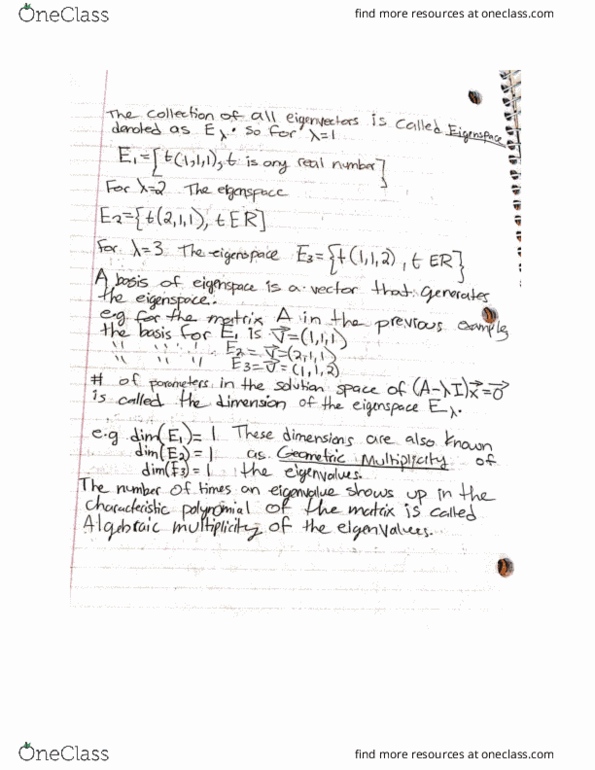 OneClass
find more resources at oneclass.com
The collection of all eigenvectors is called Eigenspace
denoted as Eλ. So for λ=1
E₁={t(1,1,1), t is any real number}
For λ=2 The eigenspace
E₂={t(2,1,1), t ER}
For λ=3 The eigenspace E₃={t(1,1,2), t ER}
A basis of eigenspace is a vector that generates
the eigenspace.
e.g for the matrix A in the previous example
the basis for E₁ is V⃗=(1,1,1)
" " " " E₂ = V⃗=(2,1,1)
" " " E₃=V⃗=(1,1,2)
# of parameters in the solution space of (A-λI)x⃗=0⃗
is called the dimension of the eigenspace Eλ.
e.g dim(E₁)=1 These dimensions are also known
dim(E₂)=1 as Geometric Multiplicity of
dim(E₃)=1 the eigenvalues.
The number of times an eigenvalue shows up in the
characteristic polynomial of the matrix is called
Algebraic multiplicity of the eigenvalues...
OneClass
find more resources at oneclass.com